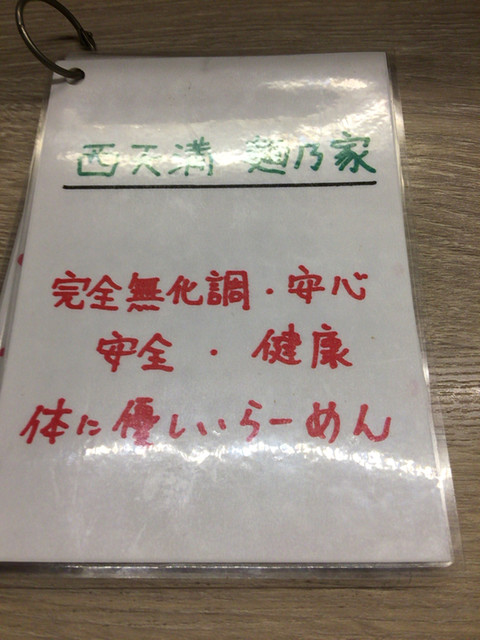 西天満 麺乃家
完全無化調・安心
安全・健康
体に優しいらーめん